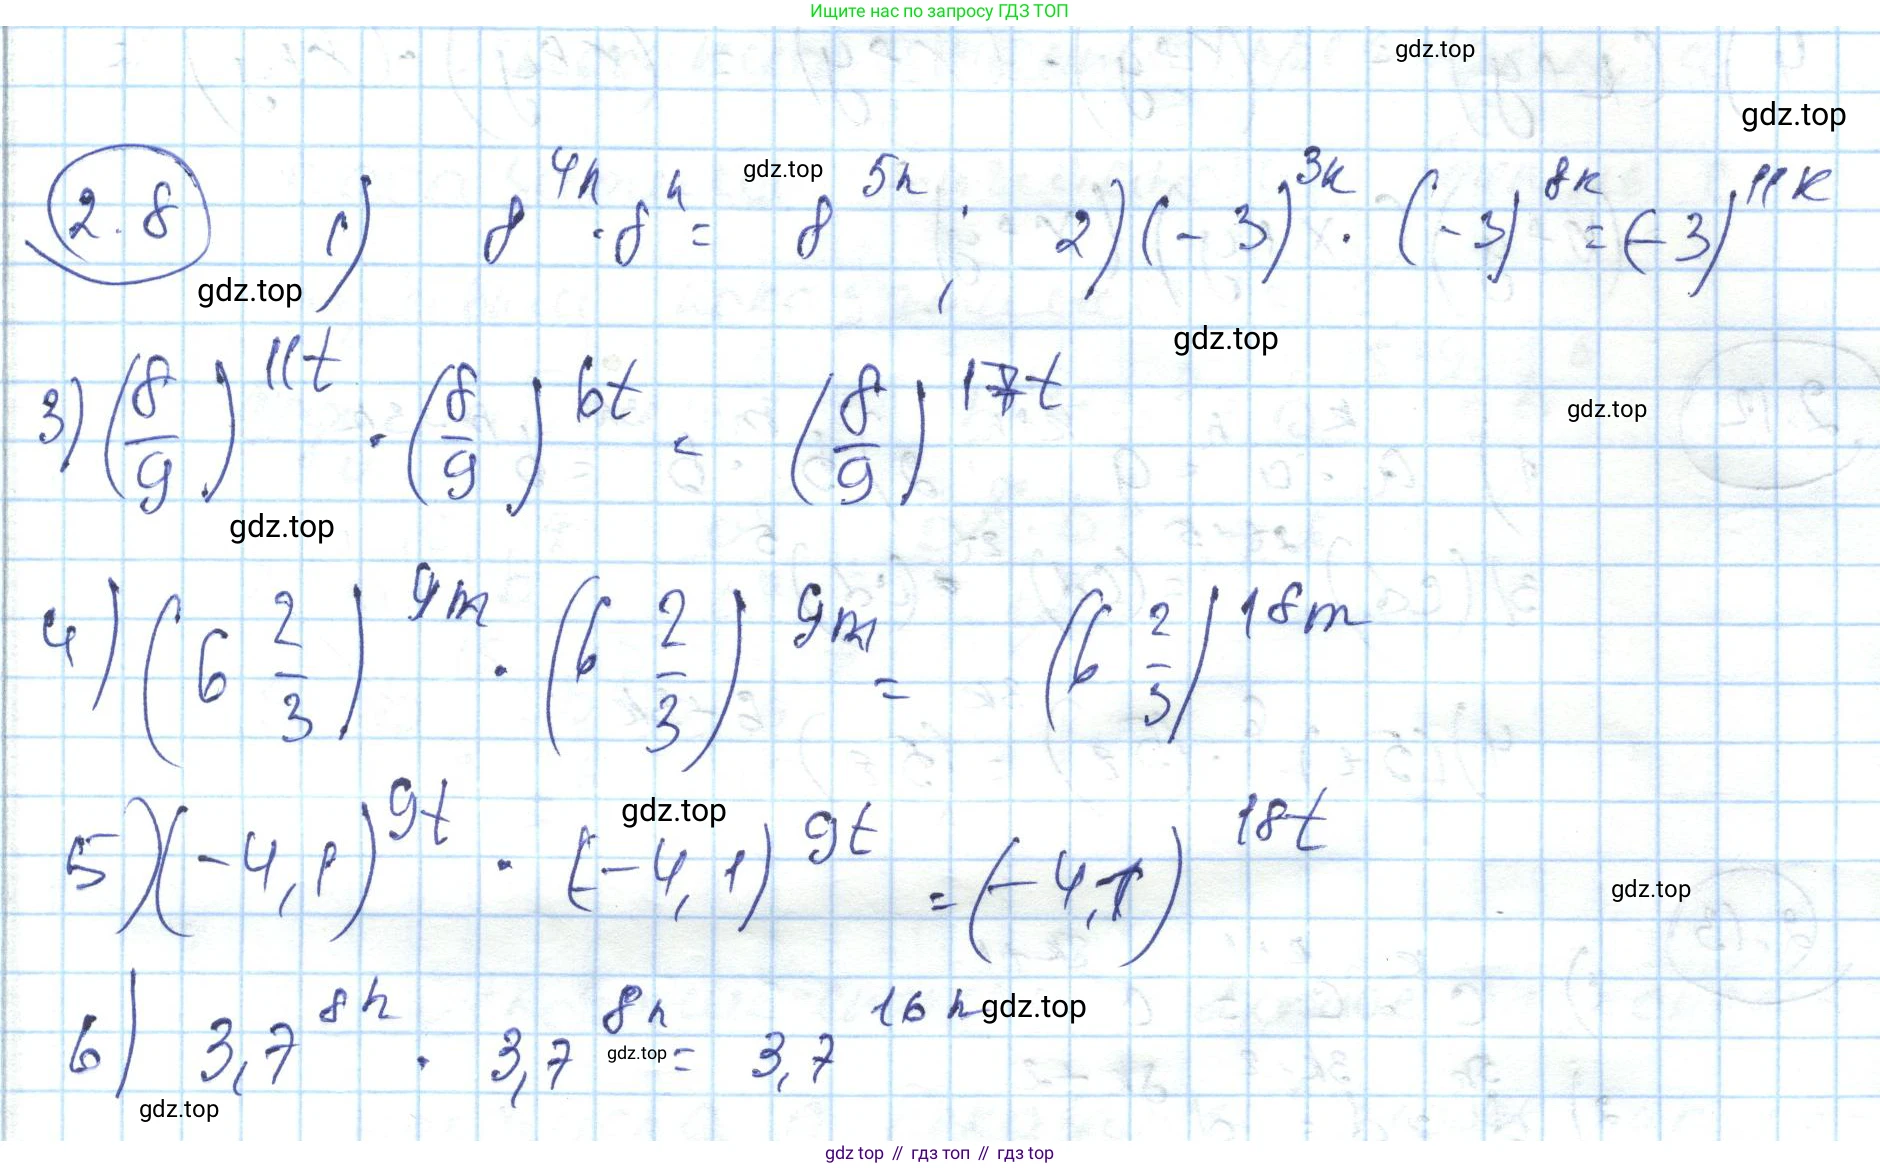 Ищите нас по запросу ГДЗ ТОП
gdz.top
gdz.top
2.8 1) 8^{4n} · 8^{n} = 8^{5n}; 2) (-3)^{3k} · (-3)^{8k} = (-3)^{11k}
gdz.top
gdz.top
gdz.top
3) (8/9)^{11t} · (8/9)^{6t} = (8/9)^{17t}
gdz.top
gdz.top
4) (6 2/3)^{9m} · (6 2/3)^{9m} = (6 2/3)^{18m}
5) (-4,1)^{9t} · (-4,1)^{9t} = (-4,1)^{18t}
gdz.top
gdz.top
6) 3,7^{8n} · 3,7^{8n} = 3,7^{16n}
gdz.top
gdz.top
gdz.top
gdz top // гдз топ // гдз top